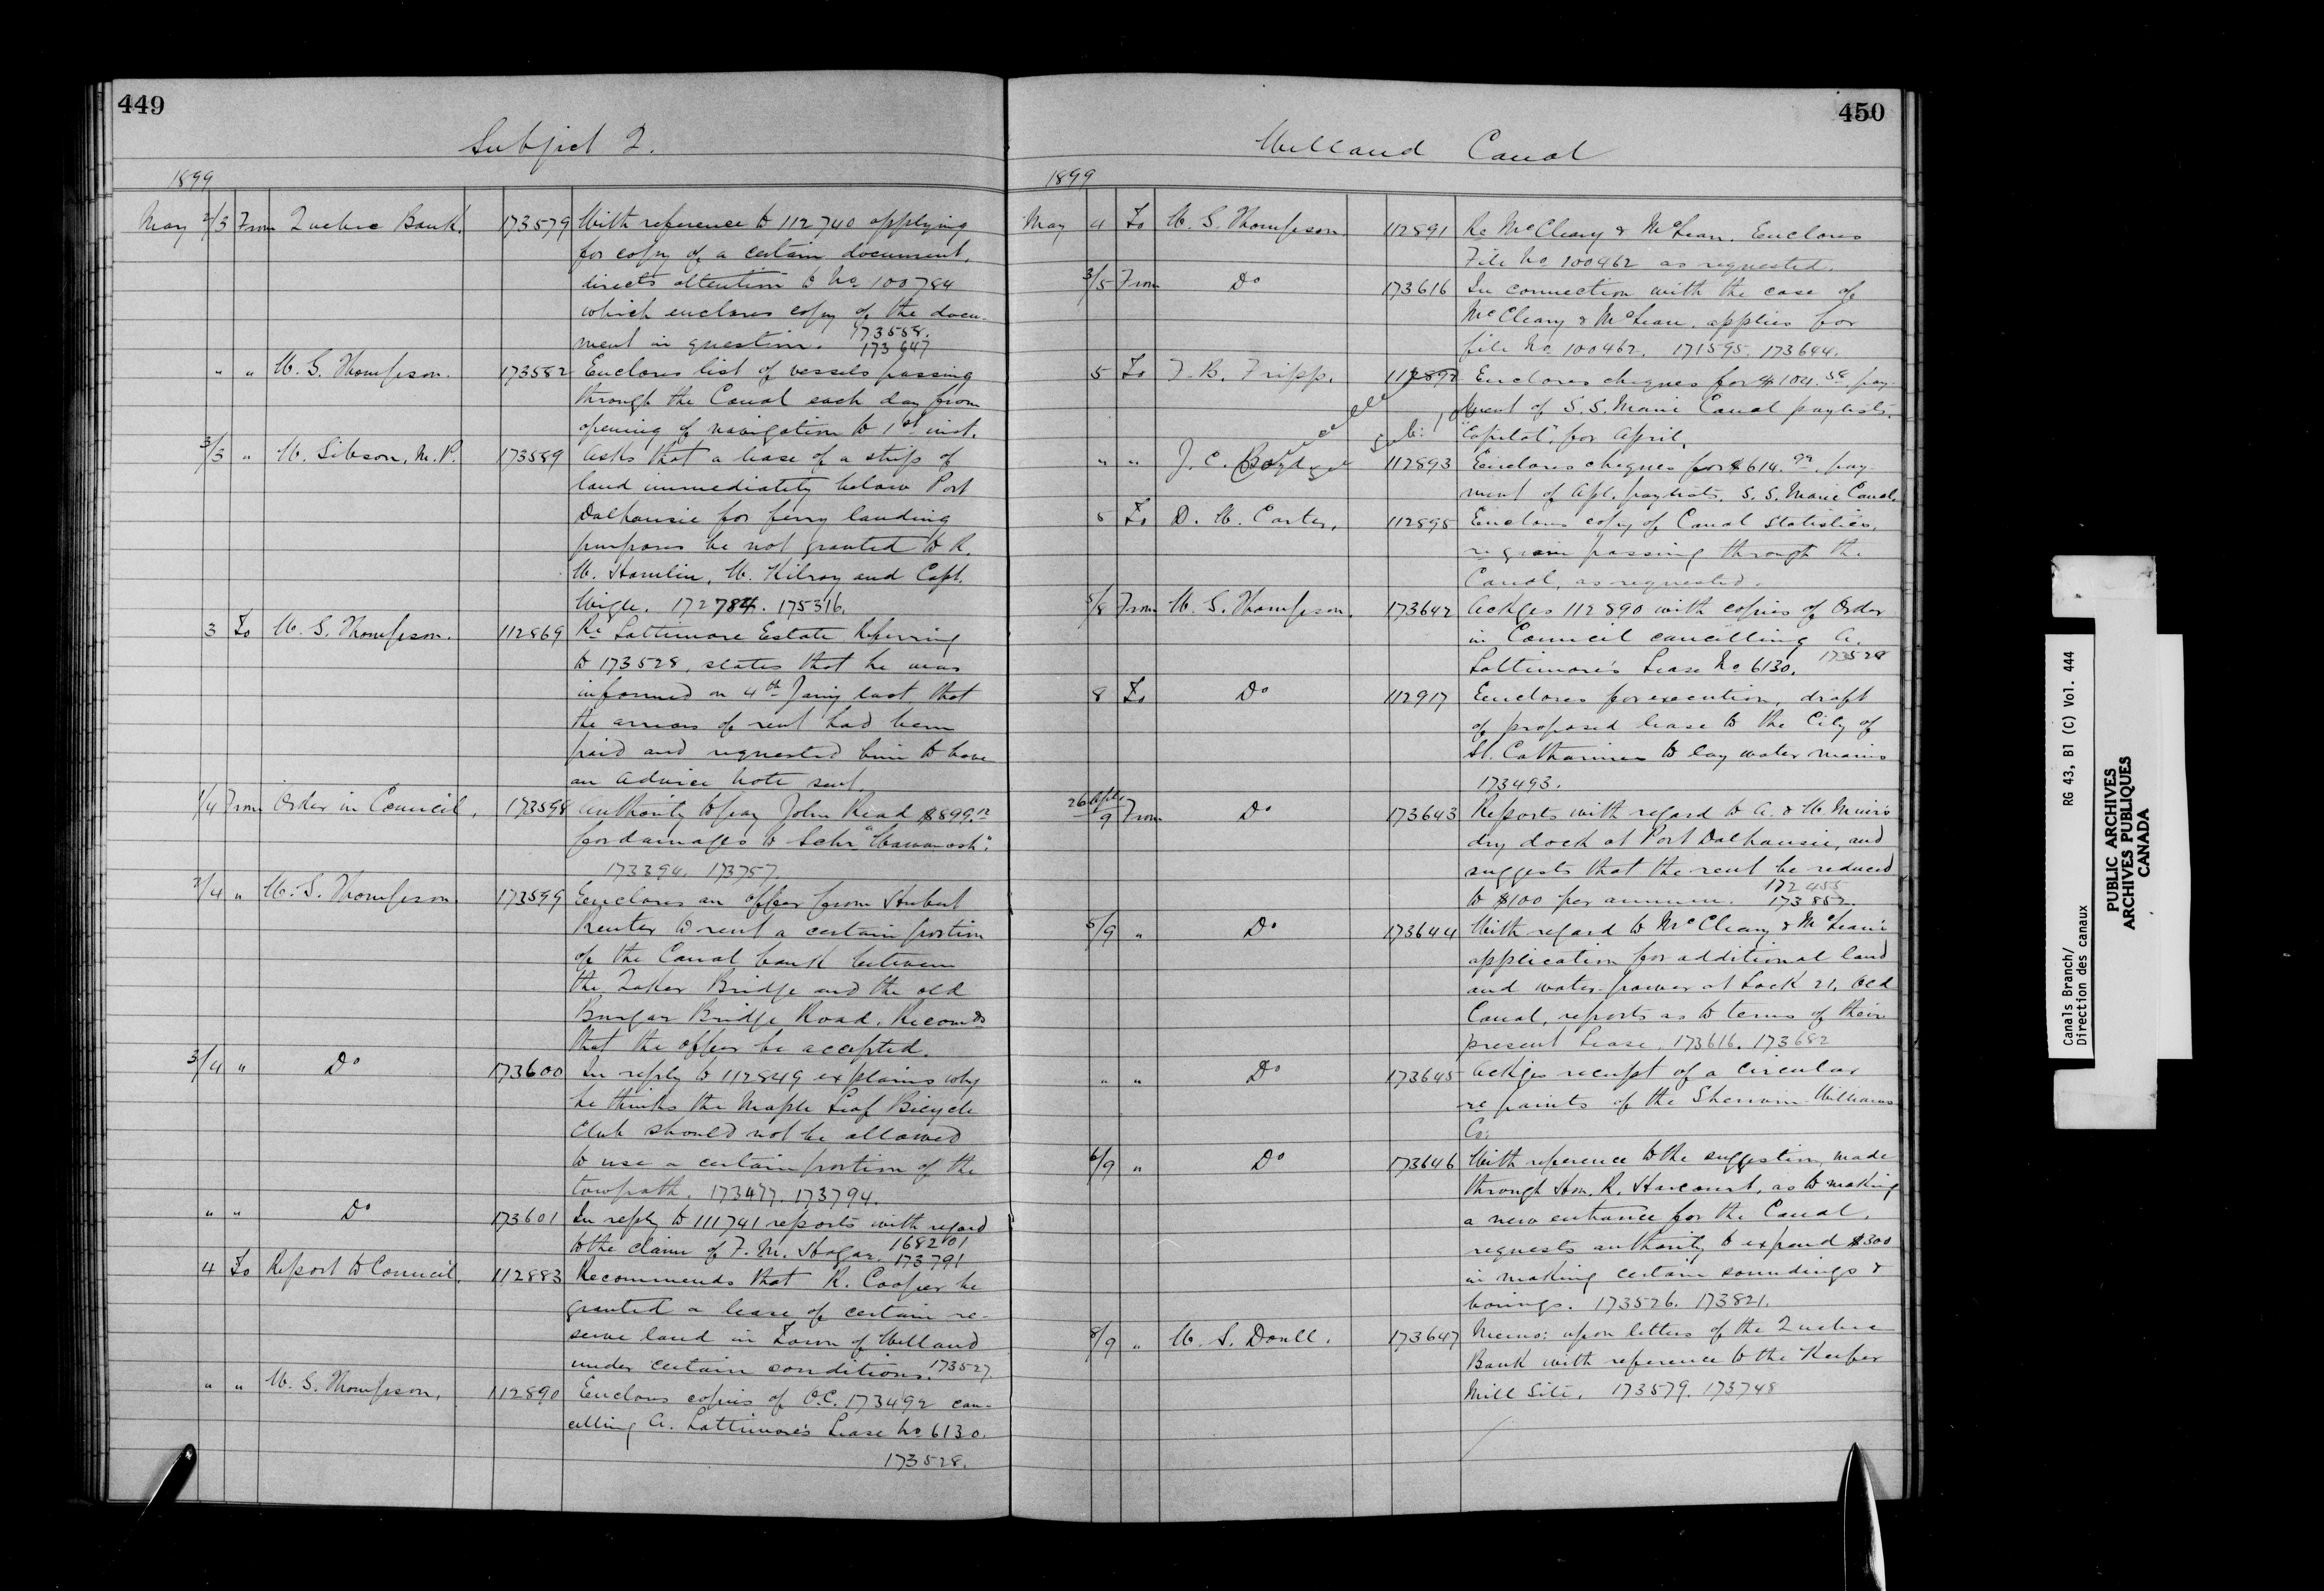 449
Subject 2.
1899
May 2/3 From Quebec Bank. 173579 With reference to 112740 applying
for copy of a certain document,
directs attention to No 100784
which encloses copy of the docu-
ment in question. 173558.
173647
" " W. G. Thompson. 173582 Encloses list of vessels passing
through the Canal each day from
opening of navigation to 1st inst.
3/3 " W. Gibson, M.P. 173589 Asks that a lease of a strip of
land immediately below Port
Dalhousie for ferry landing
purposes be not granted to R.
W. Hamlin, W. Kilroy and Capt.
Weigle. 172784. 175316.
3 To W. G. Thompson. 112869 Re Lattimore Estate Referring
to 173528, states that he was
informed on 4th Jany last that
the arrears of rent had been
paid and requested him to have
an advice note sent.
1/4 From Order in Council. 173598 Authority to pay John Read $899.12
for damages to Schr "Wawanosh".
173394. 173757.
3/4 " W. G. Thompson. 173599 Encloses an offer from Hubert
Reuter to rent a certain portion
of the Canal bank between
the Quaker Bridge and the old
Burgar Bridge Road. Recomds
that the offer be accepted.
3/4 " Do 173600 In reply to 112849 explains why
he thinks the Maple Leaf Bicycle
Club should not be allowed
to use a certain portion of the
towpath. 173477. 173794.
" " Do 173601 In reply to 111741 reports with regard
to the claim of F. M. Hagar. 168201
173791
4 To Report to Council. 112883 Recommends that R. Cooper be
granted a lease of certain re-
serve land in Town of Welland
under certain conditions. 173527.
" " W. G. Thompson. 112890 Encloses copies of O.C. 173492 can-
celling A. Lattimore's Lease No 6130.
173528.
450
Welland Canal
1899
May 4 To W. G. Thompson 112891 Re McCleary & McLean. Encloses
File No 100462 as requested.
3/5 From Do 173616 In connection with the case of
McCleary & McLean, applies for
file No. 100462. 171595. 173644.
5 To F. B. Fripp. 112892 Encloses cheques for $104.58 pay-
ment of S. S. Marie Canal paylists.
"Capital", for April.
" " J. C. Boyd 112893 Encloses cheques for $614.99. pay-
ment of Apl. paylists, S. S. Marie Canal.
5 To D. W. Carter. 112895 Encloses copy of Canal Statistics,
re grain passing through the
Canal, as requested.
5/8 From W. G. Thompson. 173642 Ackges 112890 with copies of Order
in Council cancelling A.
Lattimore's Lease No 6130. 173528
8 To Do 112917 Encloses for execution, draft
of proposed lease to the City of
St. Catharines to lay water mains
173493.
26 Aple/9 From Do 173643 Reports with regard to A. & W. Muir's
dry dock at Port Dalhousie, and
suggests that the rent be reduced
to $100 per annum. 172455
173852.
5/9 " Do 173644 With regard to McCleary & McLean's
application for additional land
and water-power at Lock 21, Old
Canal, reports as to terms of their
present Lease. 173616. 173682
" " Do 173645 Ackges receipt of a circular
re paints of the Sherwin-Williams
Co.
6/9 " Do 173646 With reference to the suggestion, made
through Hon. R. Harcourt, as to making
a new entrance for the Canal,
requests authority to expend $300
in making certain soundings &
borings. 173526. 173821.
8/9 " W. S. Doull. 173647 Memo: upon letters of the Quebec
Bank with reference to the Keefer
Mill Site. 173579. 173748
Canals Branch/ RG 43, B1 (C) Vol. 444
Direction des canaux
PUBLIC ARCHIVES
ARCHIVES PUBLIQUES
CANADA